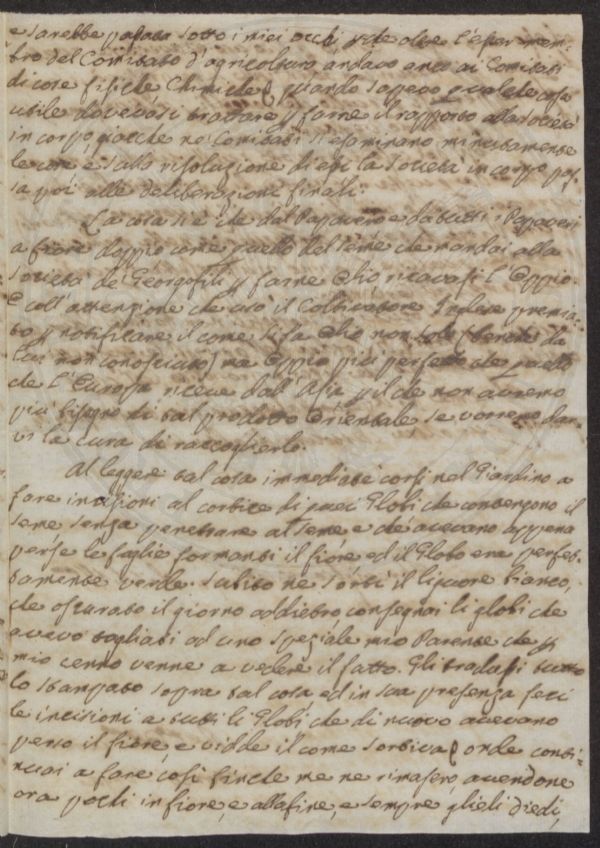 e sarebbe passato sotto i miei occhi, p che oltre l'esser mem=
bro del Comitato d'agricoltura andavo anco ai Comitati
di cose fisiche Chimiche quando sapevo qualche cosa
utile dovevasi trattare p farne il rapporto alla Società
in corpo, giacche ne' Comitati si esaminano minutamente
le cose e sulla risoluzione di essi la Società in corpo pas=
sa poi alle deliberazioni finali.
La cosa si è che dal Papavero e da tutti i Papaveri
a fiore doppio come quello del seme che mandai alla
Società de Georgofili p farne Olio ricavasi l'Oppio
e coll'attenzione che usò il Coltivatore Inglese premia=
to p notificare il come si fa Olio non solo (benche da
lui non conosciuto) ma Oppio più perfetto che quello
che l'Europa riceve dall'Asia p il che non avremo
più bisogno di tal prodotto Orientale, se vorremo dar=
vi la cura di raccoglierlo.
Al leggere tal cosa immediate corsi nel Giardino a
fare incisioni al cortice di quei Globi che contengono il
seme senza penetrare al seme e che avevano appena
perse le foglie formanti il fiore ed il Globo era perfet=
tamente verde. Subito ne sortì il liquore bianco,
che oscurato il giorno addietro consegnai li globi che
avevo tagliati ad uno speziale mio Parente che p
mio cenno venne a vedere il fatto. Gli tradussi tutto
lo stampato sopra tal cosa ed in sua presenza feci
le incisioni a tutti li Globi che di nuovo avevano
perso il fiore, e vidde il come sortiva, onde conti=
nuai a fare così finche me ne rimasero, avendone
ora pochi in fiore, e alla fine, e sempre glieli diedi,